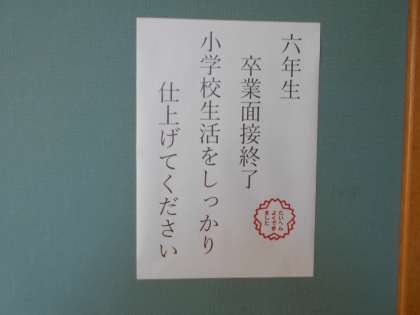 六年生
卒業面接終了
小学校生活をしっかり
仕上げてください
たいへん
よくでき
ました